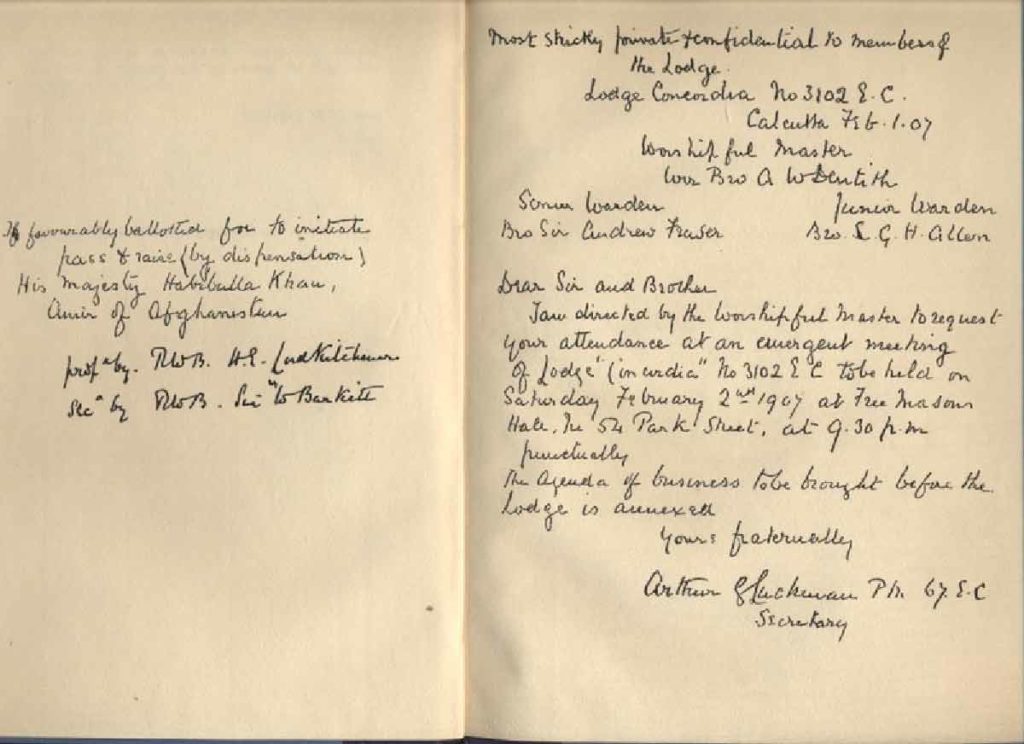 If favourably ballotted for to initiate
pass & raise (by dispensation)
His Majesty Habibulla Khan,
Amir of Afghanistan
propd by. RWB. H.E. Lord Kitchener
Secd by RWB. Sir Wm Barkitt
Most strictly private & confidential to members of
the Lodge.
Lodge Concordia No 3102 E.C.
Calcutta Feb. 1. 07
Worshipful Master
Wor Bro A W Dentith
Senior Warden
Bro Sir Andrew Fraser
Junior Warden
Bro. L. G. H. Allen
Dear Sir and Brother
I am directed by the Worshipful Master to request
your attendance at an emergent meeting
of Lodge "Concordia" No 3102 E C to be held on
Saturday February 2nd 1907 at Free Masons
Hall, No 54 Park Street, at 9.30 p.m
punctually
The Agenda of business to be brought before the
Lodge is annexed
Yours fraternally
Arthur Luckman P.M. 67. E.C
Secretary